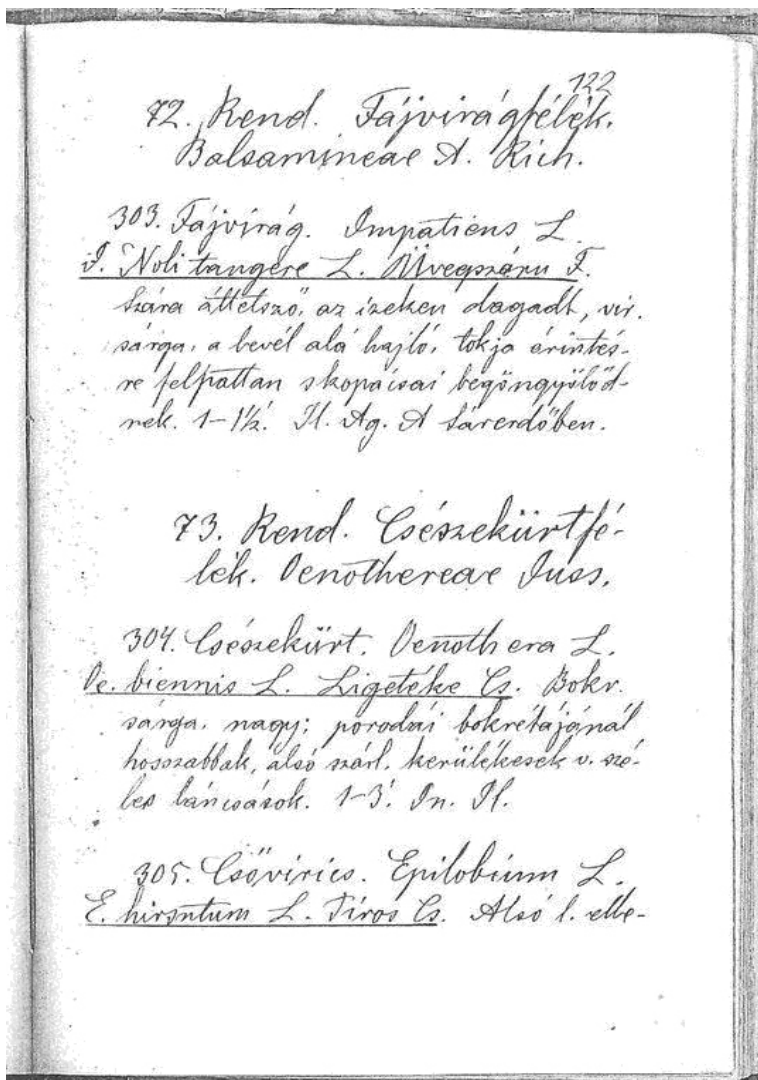 122
72. Rend. Fájvirágfélék.
Balsamineae A. Rich.
303. Fájvirág. Impatiens L.
I. Noli tangere L. Üvegszáru F.
Szára áttetsző, az izeken dagadt, vir.
sárga, a bevél alá hajló, tokja érintés-
re felpattan s kopácsai begöngyölőd-
nek. 1-1½'. Jl. Ag. A Sárerdőben.
73. Rend. Csészekürtfé-
lék. Oenothereae Juss.
304. Csészekürt. Oenothera L.
Oe. biennis L. Ligetéke Cs. Bokr.
sárga, nagy; porodái bokrétájánál
hosszabbak, alsó szárl. kerülékesek v. szé-
les láncsások. 1-3'. Jn. Jl.
305. Csőviries. Epilobium L.
E. hirsutum L. Piros Cs. Alsó l. elle-